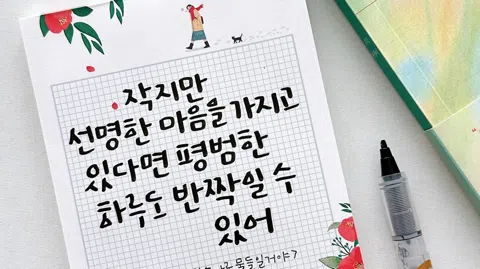 작지만
선명한 마음을 가지고
있다면 평범한
하루도 반짝일 수
있어
물들일거야?